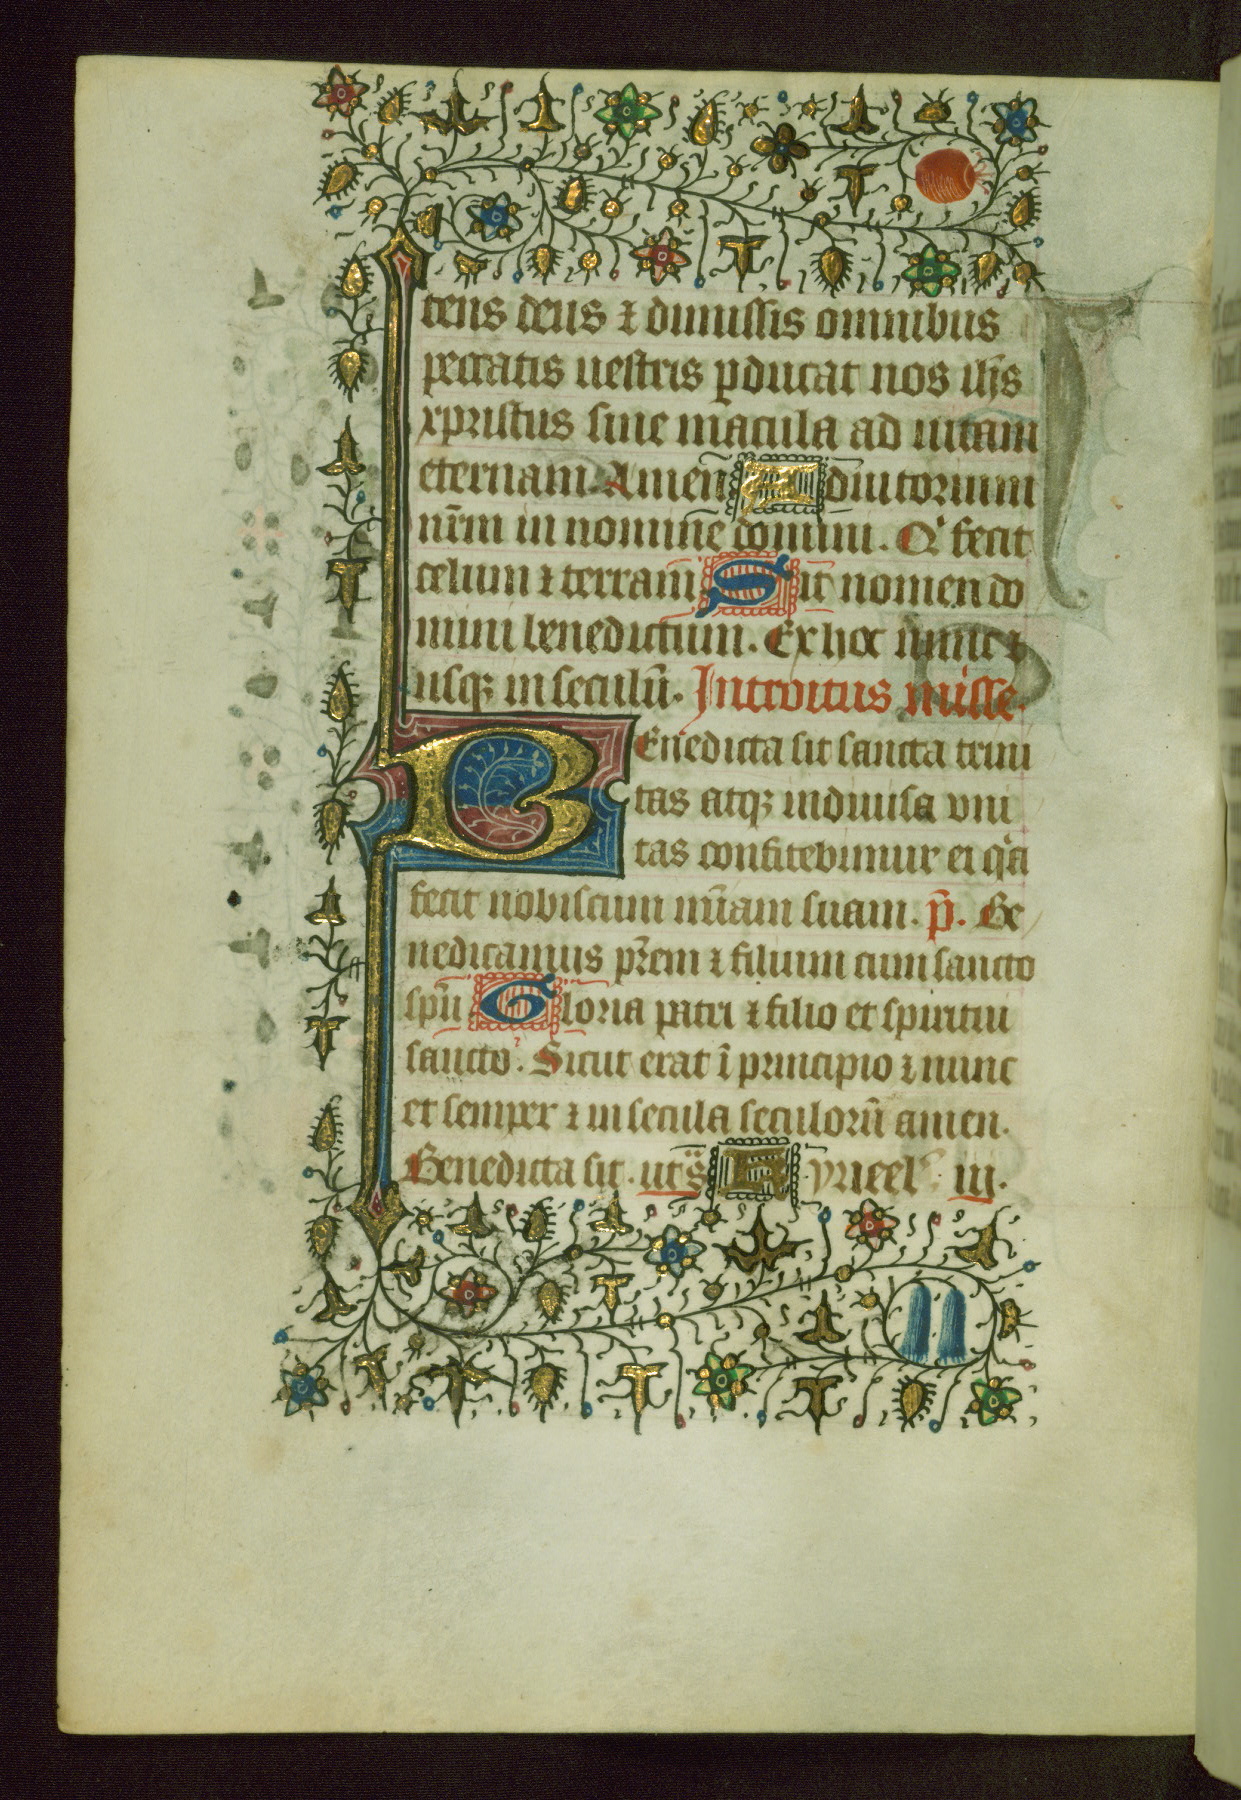 tens deus ⁊ dimissis omnibus
peccatis uestris ꝑducat nos ih̄s
xpristus sine macula ad uitam
eternam. Amen̄ Adiutorium
nr̄m in nomine domini. Qͥ fecit
celum ⁊ terram Sit nomen do
mini benedictum. Ex hoc nunc ⁊
usqꝫ in seculū. Introitus misse.
Benedicta sit sancta trini
tas atqꝫ indiuisa vni
tas confitebimur ei qͥa
fecit nobiscum mīam suam. p̄. Be
nedicamus pr̄em ⁊ filium cum sancto
spū Gloria patri ⁊ filio et spiritui
sancto. Sicut erat ī principio ⁊ nunc
et semper ⁊ in secula seculorū amen.
Benedicta sit. ut sͣ Kyrieel' iij.